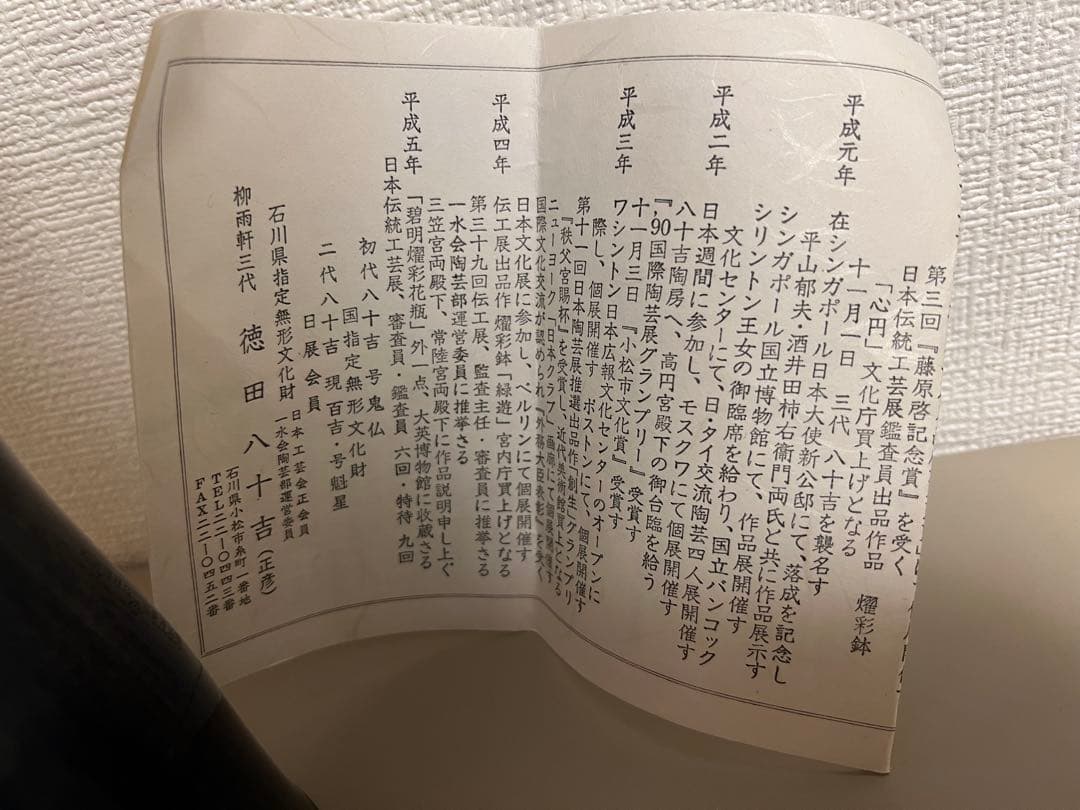 第三回『藤原啓記念賞』を受く
日本伝統工芸展鑑査員出品作品 燿彩鉢
「心円」文化庁買上げとなる
十一月一日 三代 八十吉を襲名す
平成元年 在シンガポール日本大使新公邸にて、落成を記念し
平山郁夫・酒井田柿右衛門両氏と共に作品展示す
シンガポール国立博物館にて、作品展開催す
シリントン王女の御臨席を給わり、国立バンコック
文化センターにて、日・タイ交流陶芸四人展開催す
平成二年 日本週間に参加し、モスクワにて個展開催す
八十吉陶房へ、高円宮殿下の御台臨を給う
『'90国際陶芸展グランプリー』受賞す
十一月三日 『小松市文化賞』受賞す
平成三年 ワシントン日本広報文化センターのオープンに
際し、個展開催す ボストンにて 個展開催す
第十一回日本陶芸展推選出品作「創生」グランプリ
『秩父宮賜杯』を受賞し、近代美術館買上となる
ニューヨーク「日本クラブ」画廊にて個展開催す
国際文化交流が認められ『外務大臣表彰』を受く
平成四年 日本文化展に参加し、ベルリンにて個展開催す
伝工展出品作「燿彩鉢「緑遊」宮内庁買上げとなる
第三十九回伝工展、監査主任・審査員に推挙さる
一水会陶芸部運営委員に推挙さる
三笠宮両殿下、常陸宮両殿下に作品説明申し上ぐ
平成五年 「碧明燿彩花瓶」外一点、大英博物館に収蔵さる
日本伝統工芸展、審査員・鑑査員 六回・特待 九回
初代八十吉 号 鬼仏
国指定無形文化財
二代八十吉 現百吉・号魁星
日展会員
石川県指定無形文化財
日本工芸会正会員
一水会陶芸部運営委員
柳雨軒三代 徳田八十吉(正彦)
石川県小松市糸町一番地
TEL二二-〇四四三番
FAX二二-〇四五二番